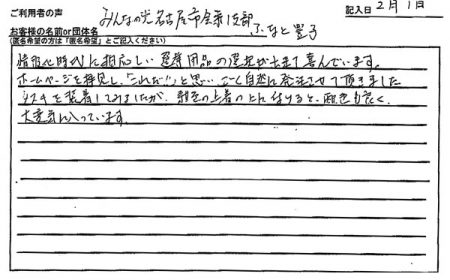 ご利用者の声
記入日 2月1日
お客様の名前or団体名
みんなの党名古屋市会第12支部
ふなと 豊子
(匿名希望の方は「匿名希望」とご記入ください)
情報化時代に相応しい選挙用品の選定が出来て喜んでいます。
ホームページを拝見し、「これだ!」と思い、ごく自然に発注させて頂きました
タスキを装着してみましたが、の上着の上に付けると、配色も良く、
大変気に入っています。